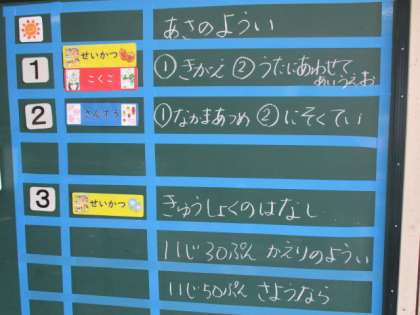 あさのようい
1 せいかつ こくご ①きがえ ②うたにあわせて
あいうえお
2 さんすう ①なかまあつめ ②にそくてい
3 せいかつ きゅうしょくのはなし
11じ30ぷん かえりのようい
11じ50ぷん さようなら